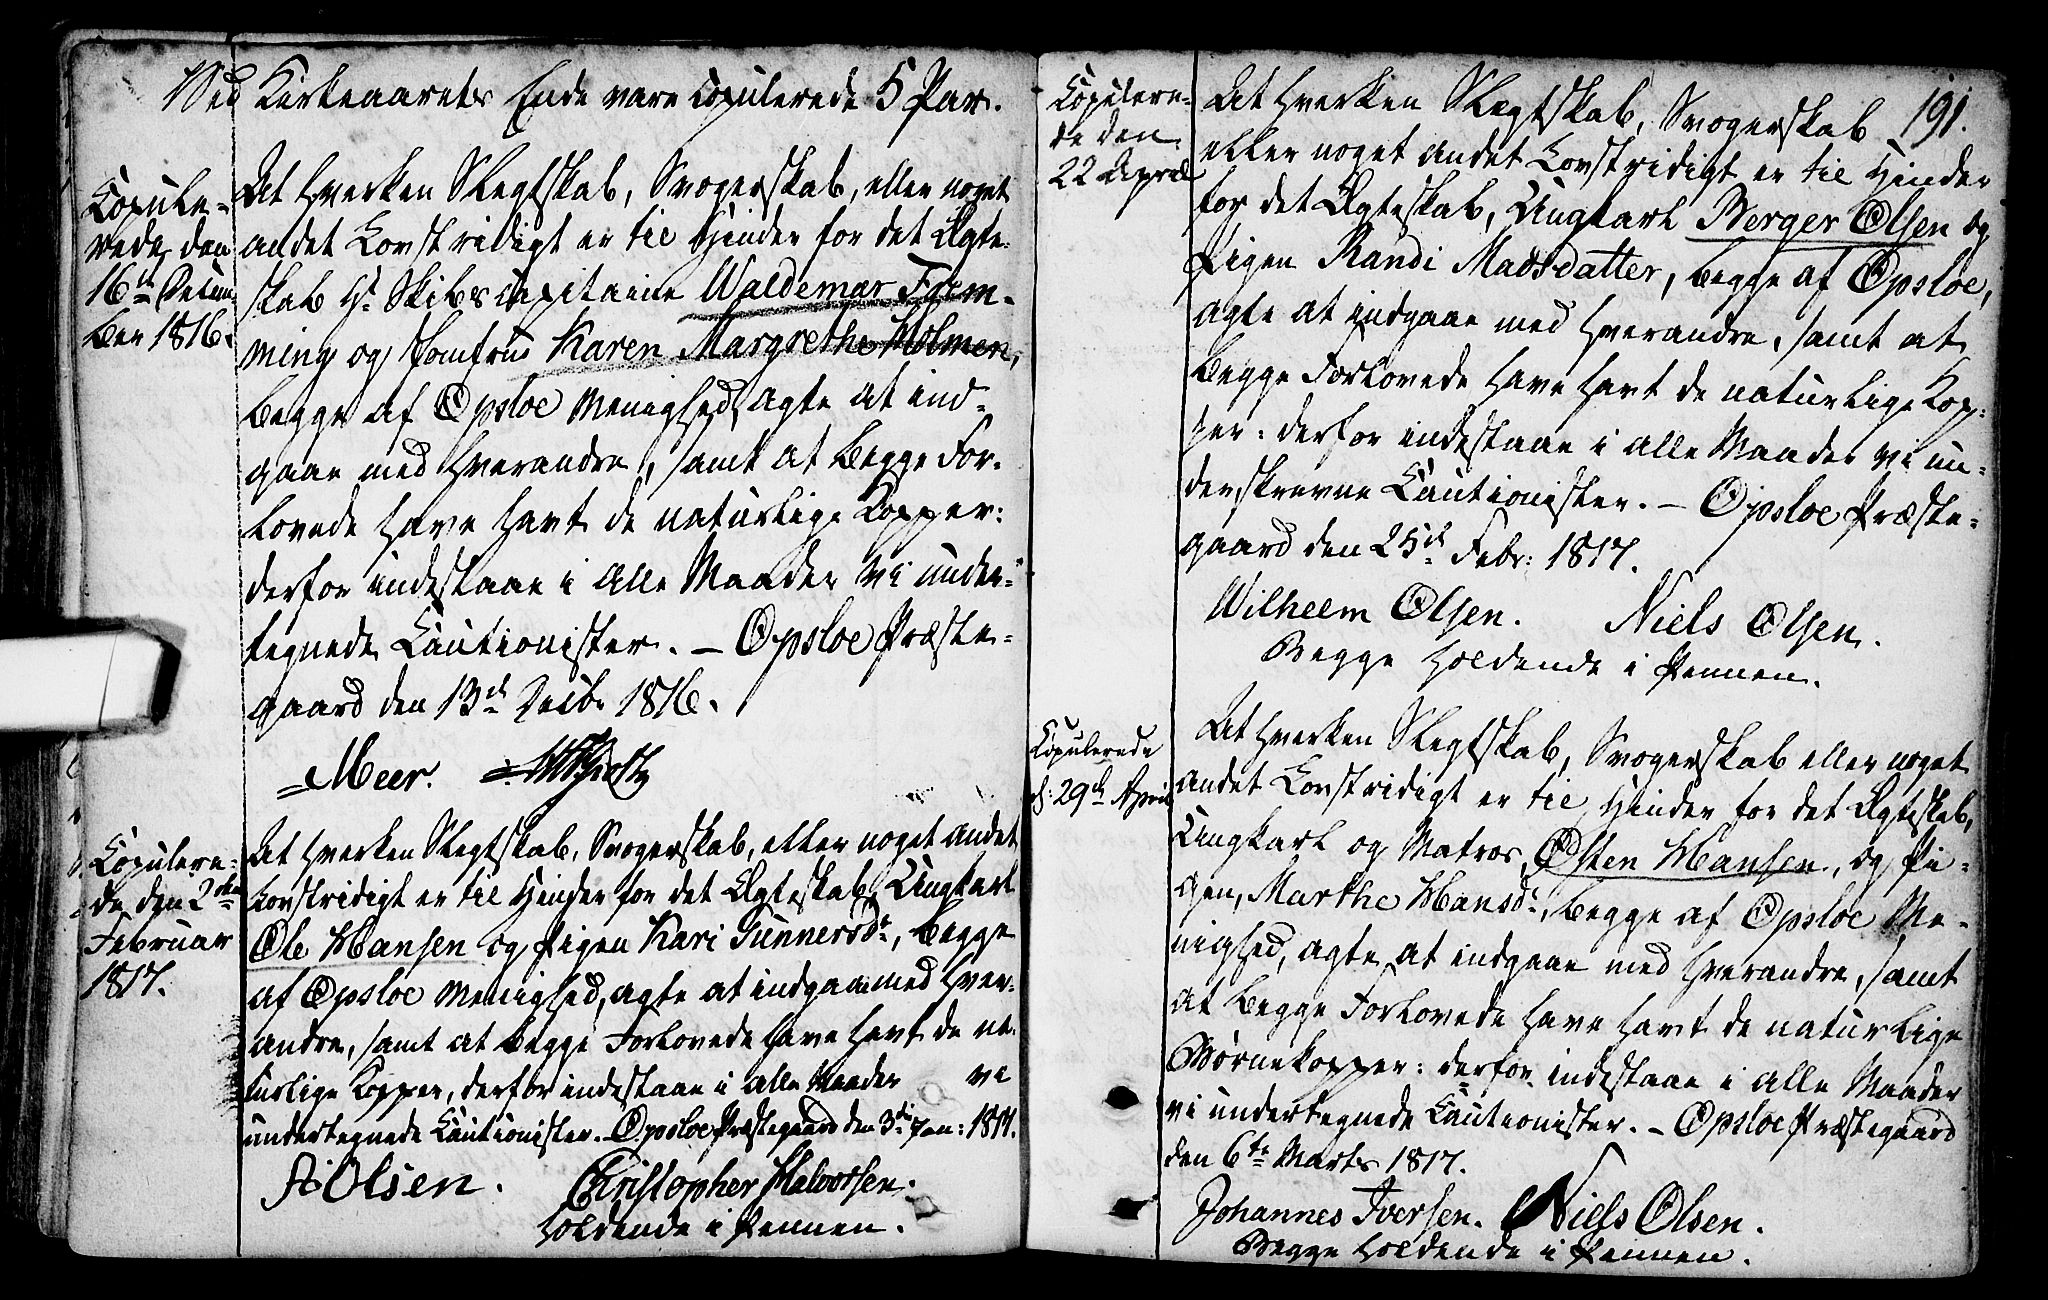 Ved Kirkeaarets Ende vare copulerede 5 Par.
Copule-
rede den
16de Decem-
ber 1816.
At hverken Slegtskab, Svogerskab, eller noget
andet Lovstridigt er til Hinder for det Ægte-
skab Hr. Skibscapitaine Waldemar Flem-
ming og Jomfrue Karen Margrethe Holmen,
begge af Opsloe Menighed, agte at ind-
gaae med hverandre, samt at begge For-
lovede have havt de naturlige Kopper:
derfor indestaae i alle Maader vi under-
tegnede Cautionister. – Opsloe Præste-
gaard den 13de Decbr 1816.
Meer.
Copulere-
de den 2den
Februar
1817.
At hverken Slegtskab, Svogerskab, eller noget andet
Lovstridigt er til Hinder for det Ægteskab, Ungkarl
Ole Hansen og Pigen Kari Gunnersdr, begge
af Opsloe Menighed, agte at indgaae med hver-
andre, samt at begge Forlovede have havt de na-
turlige Kopper, derfor indestaae i alle Maader vi
undertegnede Cautionister. Opsloe Præstegaard den 3di Jan: 1817.
A: Olsen. Christopher Halvorsen.
holdende i Pennen.
191.
Copulere-
de den
22 April
At hverken Slegtskab, Svogerskab
eller noget andet Lovstridigt er til Hinder
for det Ægteskab, Ungkarl Berger Olsen og
Pigen Randi Madsdatter, begge af Opsloe,
agte at indgaae med hverandre, samt at
begge Forlovede have havt de naturlige Kop-
per: derfor indestaae i alle Maader vi un-
derskrevne Cautionister. – Opsloe Præste-
gaard den 25de Febr: 1817.
Wilhelm Olsen. Niels Olsen.
Begge holdende i Pennen.
Copulerede
d: 29de April
At hverken Slegtskab, Svogerskab eller noget
andet Lovstridigt er til Hinder for det Ægteskab,
Ungkarl og Matros, Østen Hansen, og Pi-
gen, Marthe Hansdr, begge af Opsloe Me-
nighed, agte at indgaae med hverandre, samt
at begge Forlovede have havt de naturlige
Børnekopper: derfor indestaae i alle Maader
vi undertegnede Cautionister. – Opsloe Præstegaard
den 6te Marts 1817.
Johannes Iversen. Niels Olsen.
Begge holdende i Pennen.